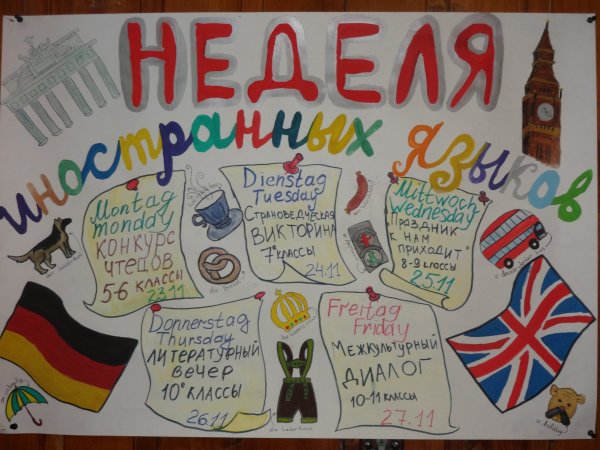 НЕДЕЛЯ
иностранных языков
Montag
monday
КОНКУРС
ЧТЕЦОВ
5-6 КЛАССЫ
23.11
Dienstag
Tuesday
СТРАНОВЕДЧЕСКАЯ
ВИКТОРИНА
7е КЛАССЫ
24.11
Mittwoch
Wednesday
"ПРАЗДНИК
К НАМ
ПРИХОДИТ"
8-9 КЛАССЫ
25.11
a double-decker
die Brezel
Donnerstag
Thursday
ЛИТЕРАТУРНЫЙ
ВЕЧЕР
10е КЛАССЫ
26.11
Freitag
Friday
МЕЖКУЛЬТУРНЫЙ
ДИАЛОГ
10-11 КЛАССЫ
27.11
an umbrella
die Lederhose
a bulldog